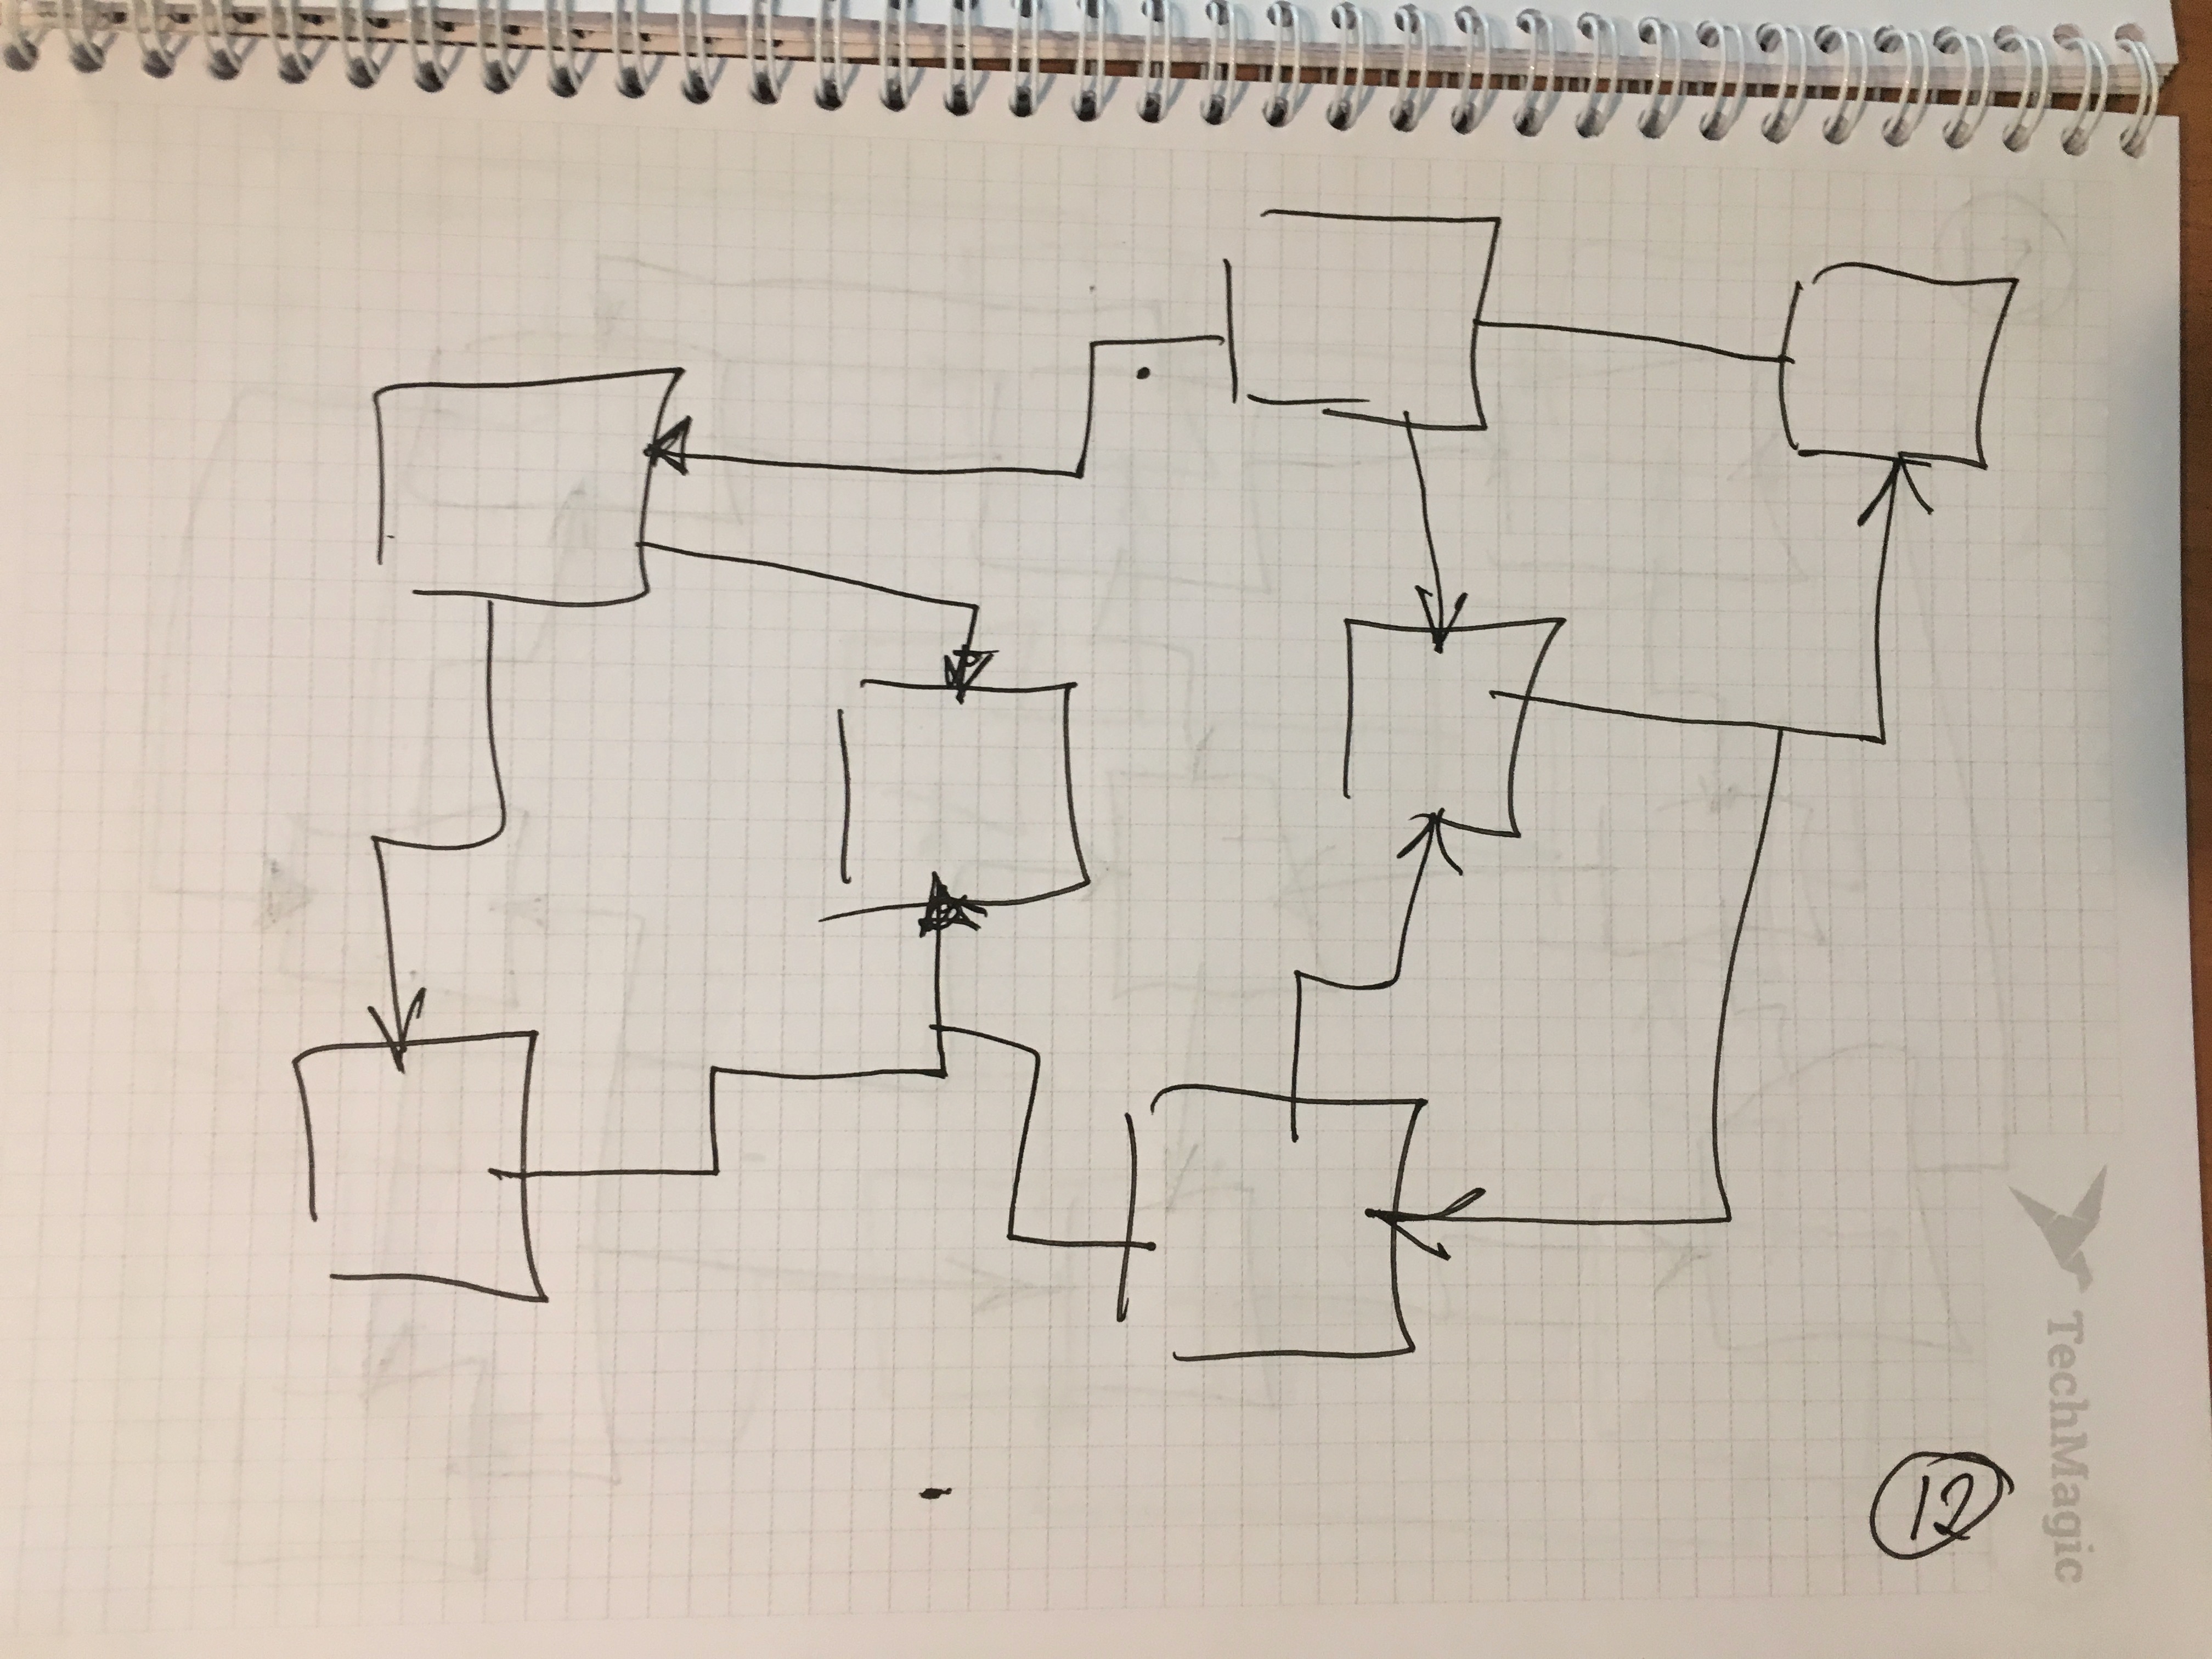 TechMagic
12